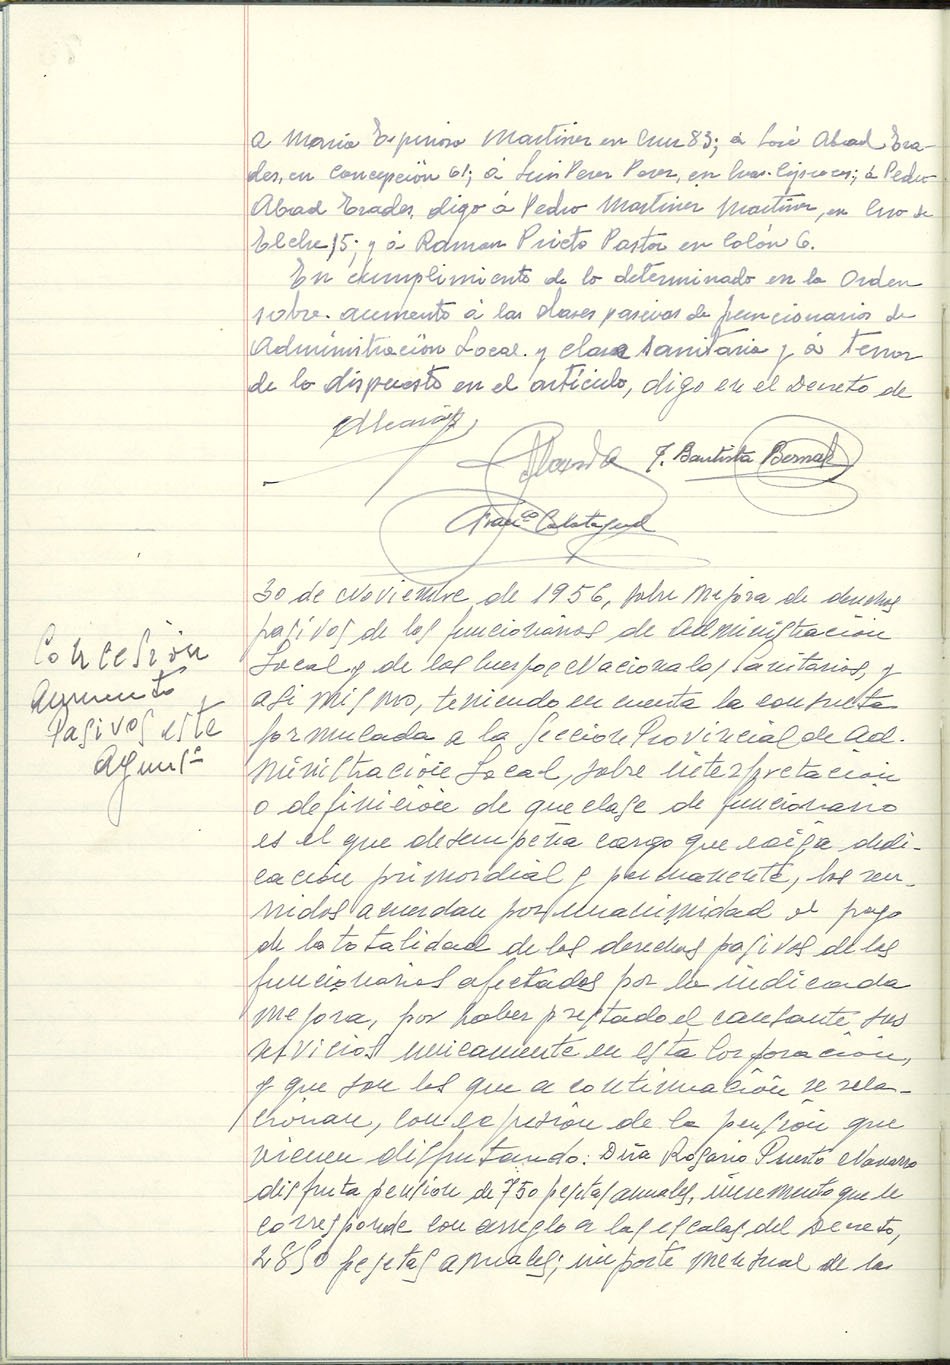 a María Espinosa Martinez en Cruz 83; á José Abad Era-
des, en Concepción 61; á Luis Perez Perez, en ; á Pedro
Abad Erades, digo á Pedro Martinez Martinez, en de
Elche, 5; y á Ramon Prieto Pastor en Colón 6.
En cumplimiento de lo determinado en la Orden
sobre aumento á las clases pasivas de funcionarios de
Administración Local y clase sanitaria y á tenor
de lo dispuesto en el artículo, digo en el Decreto de
F. Bautista Bernal
Franco Calatayud
30 de Noviembre de 1956, sobre mejora de derechos
pasivos de los funcionarios de Administración
Local y de los Cuerpos Nacionales Sanitarios, y
Concesión
asi mismo, teniendo en cuenta la consulta
Aumento
formulada a la Sección Provincial de Ad-
Pasivos este
ministración Local, sobre interpretación
Ayunto
o definición de que clase de funcionario
es el que desempeña cargo que exija dedi-
cación primordial y permanente, los reu-
nidos acuerdan por unanimidad el pago
de la totalidad de los derechos pasivos de los
funcionarios afectados por la indicada
mejora, por haber prestado el causante sus
servicios unicamente en esta Corporación,
y que son los que a continuación se rela-
cionan, con expresión de la pensión que
vienen disfrutando: Dña Rosario Puerto Navarro
disfruta pensión de 750 pesetas anuales, incremento que le
corresponde con arreglo a las escalas del Decreto,
2850 pesetas anuales; importe mensual de la